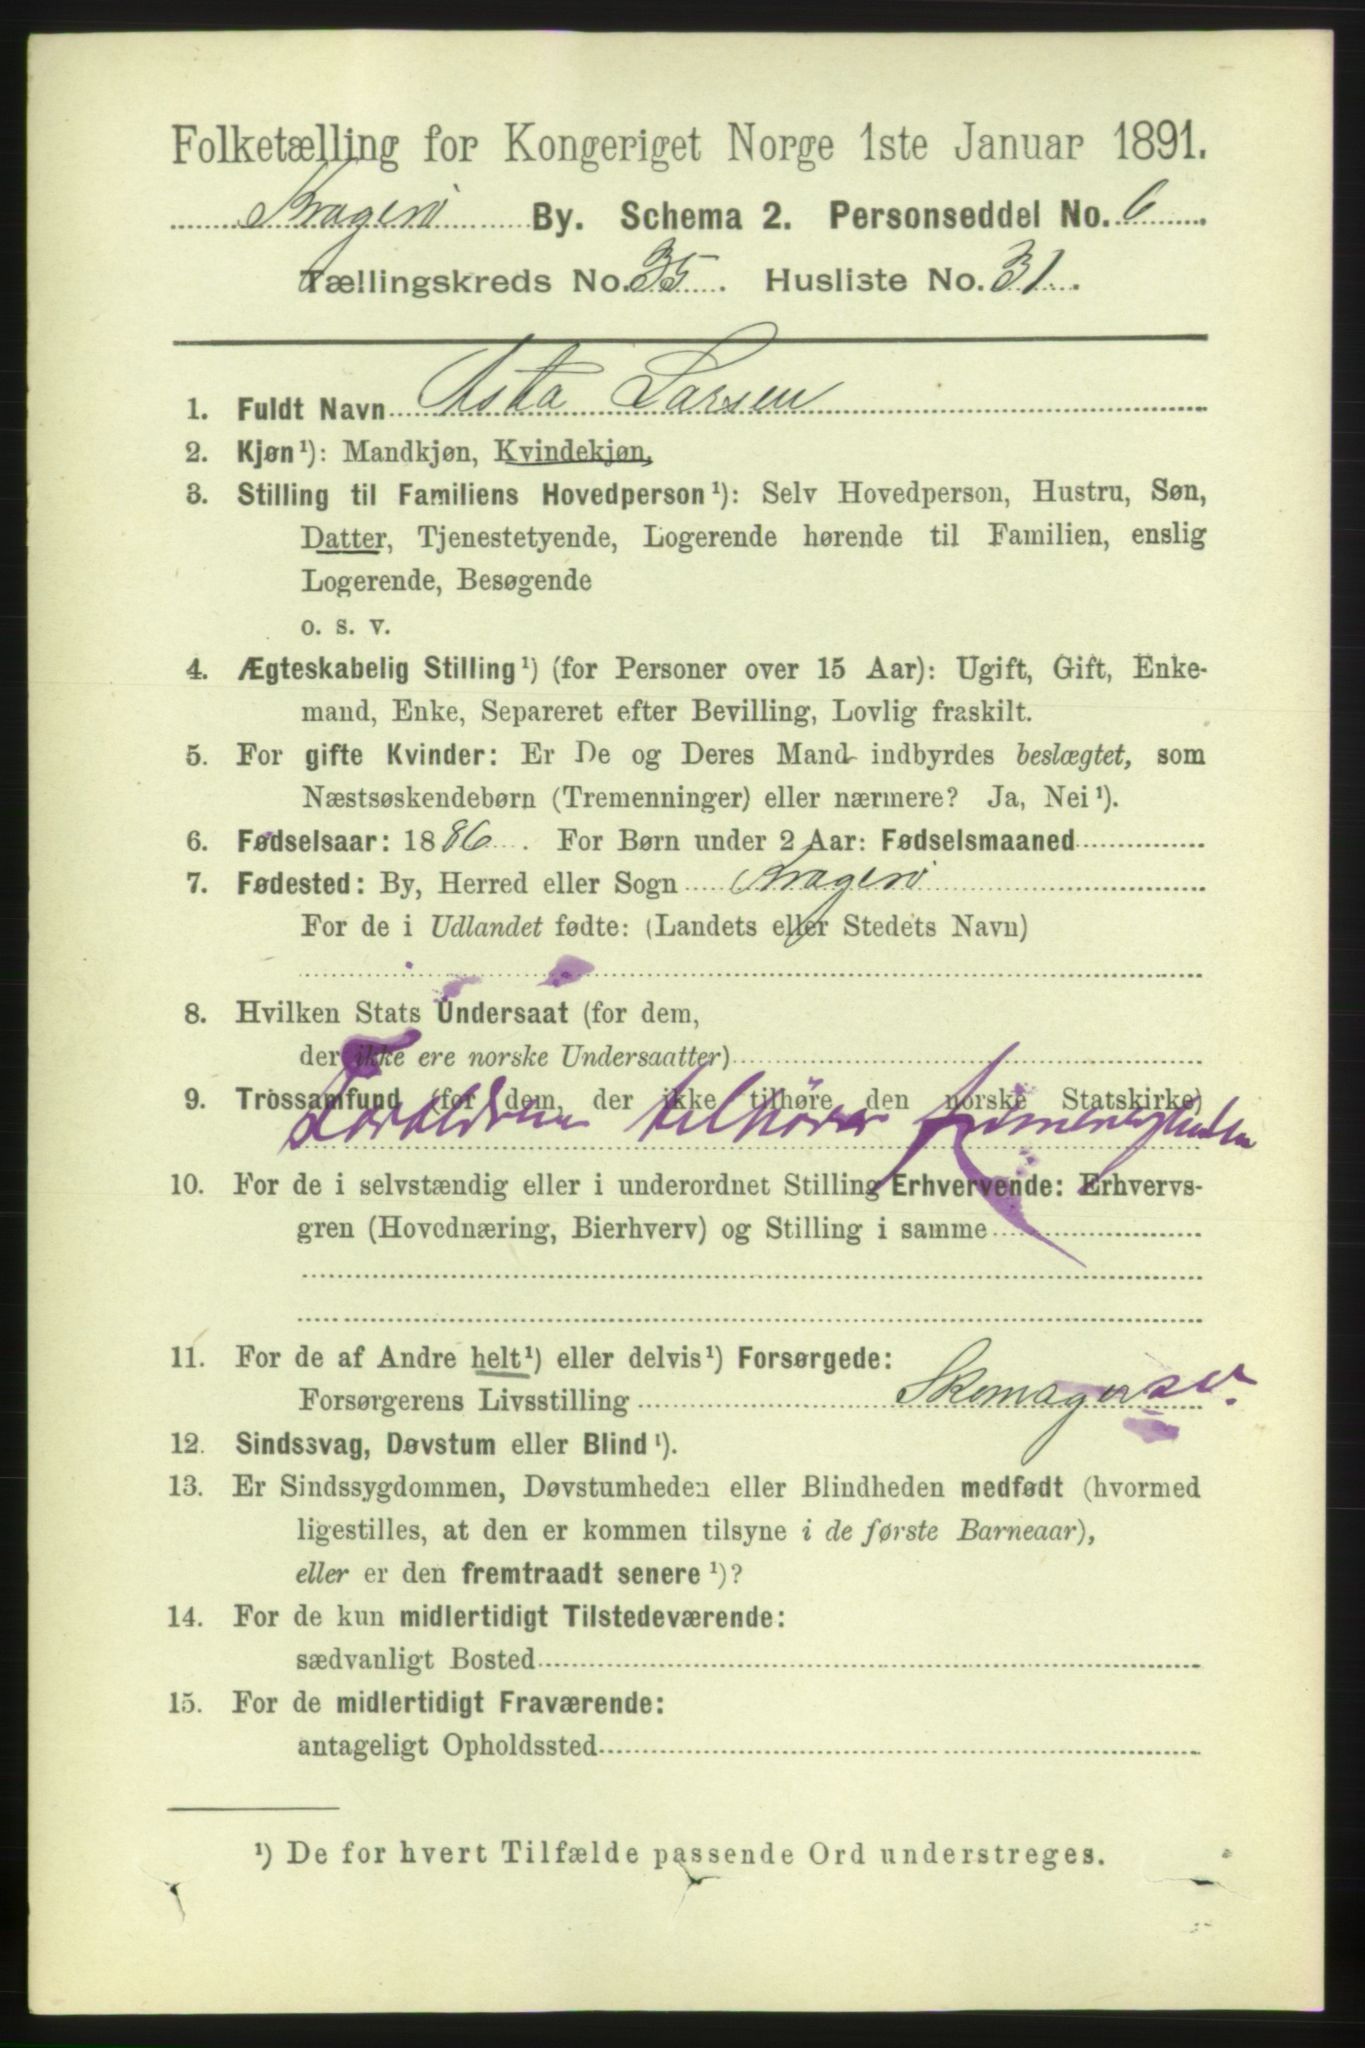 Folketælling for Kongeriget Norge 1ste Januar 1891.
Kragerø By. Schema 2. Personseddel No. 6
Tællingskreds No. 35. Husliste No. 31.
1. Fuldt Navn Asta Larsen
2. Kjøn¹): Mandkjøn, Kvindekjøn,
3. Stilling til Familiens Hovedperson¹): Selv Hovedperson, Hustru, Søn,
Datter, Tjenestetyende, Logerende hørende til Familien, enslig
Logerende, Besøgende
o. s. v.
4. Ægteskabelig Stilling¹) (for Personer over 15 Aar): Ugift, Gift, Enke-
mand, Enke, Separeret efter Bevilling, Lovlig fraskilt.
5. For gifte Kvinder: Er De og Deres Mand indbyrdes beslægtet, som
Næstsøskendebørn (Tremenninger) eller nærmere? Ja, Nei¹).
6. Fødselsaar: 1886. For Børn under 2 Aar: Fødselsmaaned
7. Fødested: By, Herred eller Sogn Kragerø
For de i Udlandet fødte: (Landets eller Stedets Navn)
8. Hvilken Stats Undersaat (for dem,
der ikke ere norske Undersaatter)
9. Trossamfund (for dem, der ikke tilhøre den norske Statskirke)
Forældrene tilhører frimenigheden
10. For de i selvstændig eller i underordnet Stilling Erhvervende: Erhvervs-
gren (Hovednæring, Bierhverv) og Stilling i samme
11. For de af Andre helt¹) eller delvis¹) Forsørgede:
Forsørgerens Livsstilling
12. Sindssvag, Døvstum eller Blind¹).
13. Er Sindssygdommen, Døvstumheden eller Blindheden medfødt (hvormed
ligestilles, at den er kommen tilsyne i de første Barneaar),
eller er den fremtraadt senere¹)?
14. For de kun midlertidigt Tilstedeværende:
sædvanligt Bosted
15. For de midlertidigt Fraværende:
antageligt Opholdssted
¹) De for hvert Tilfælde passende Ord understreges.